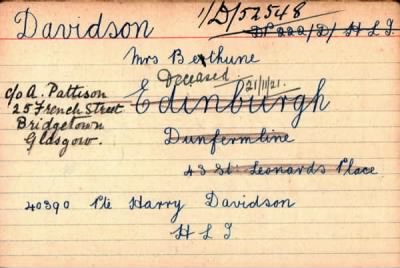 Davidson 1/D/52548
D 222/D/ H L I
Mrs Bethune
Deceased. 21/11/21.
c/o A. Pattison
25 French Street
Bridgetown
Glasgow.
Edinburgh
Dunfermline
43 St Leonards Place
40390 Pte Harry Davidson
H L I